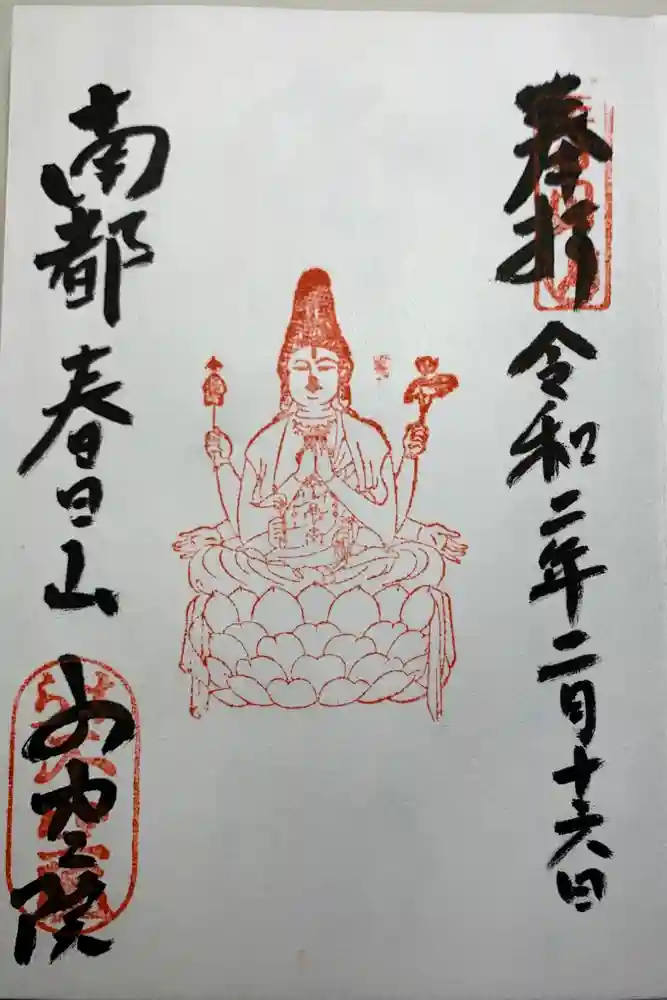 奉拝 令和二年二月十六日
南都 春日山 不空院